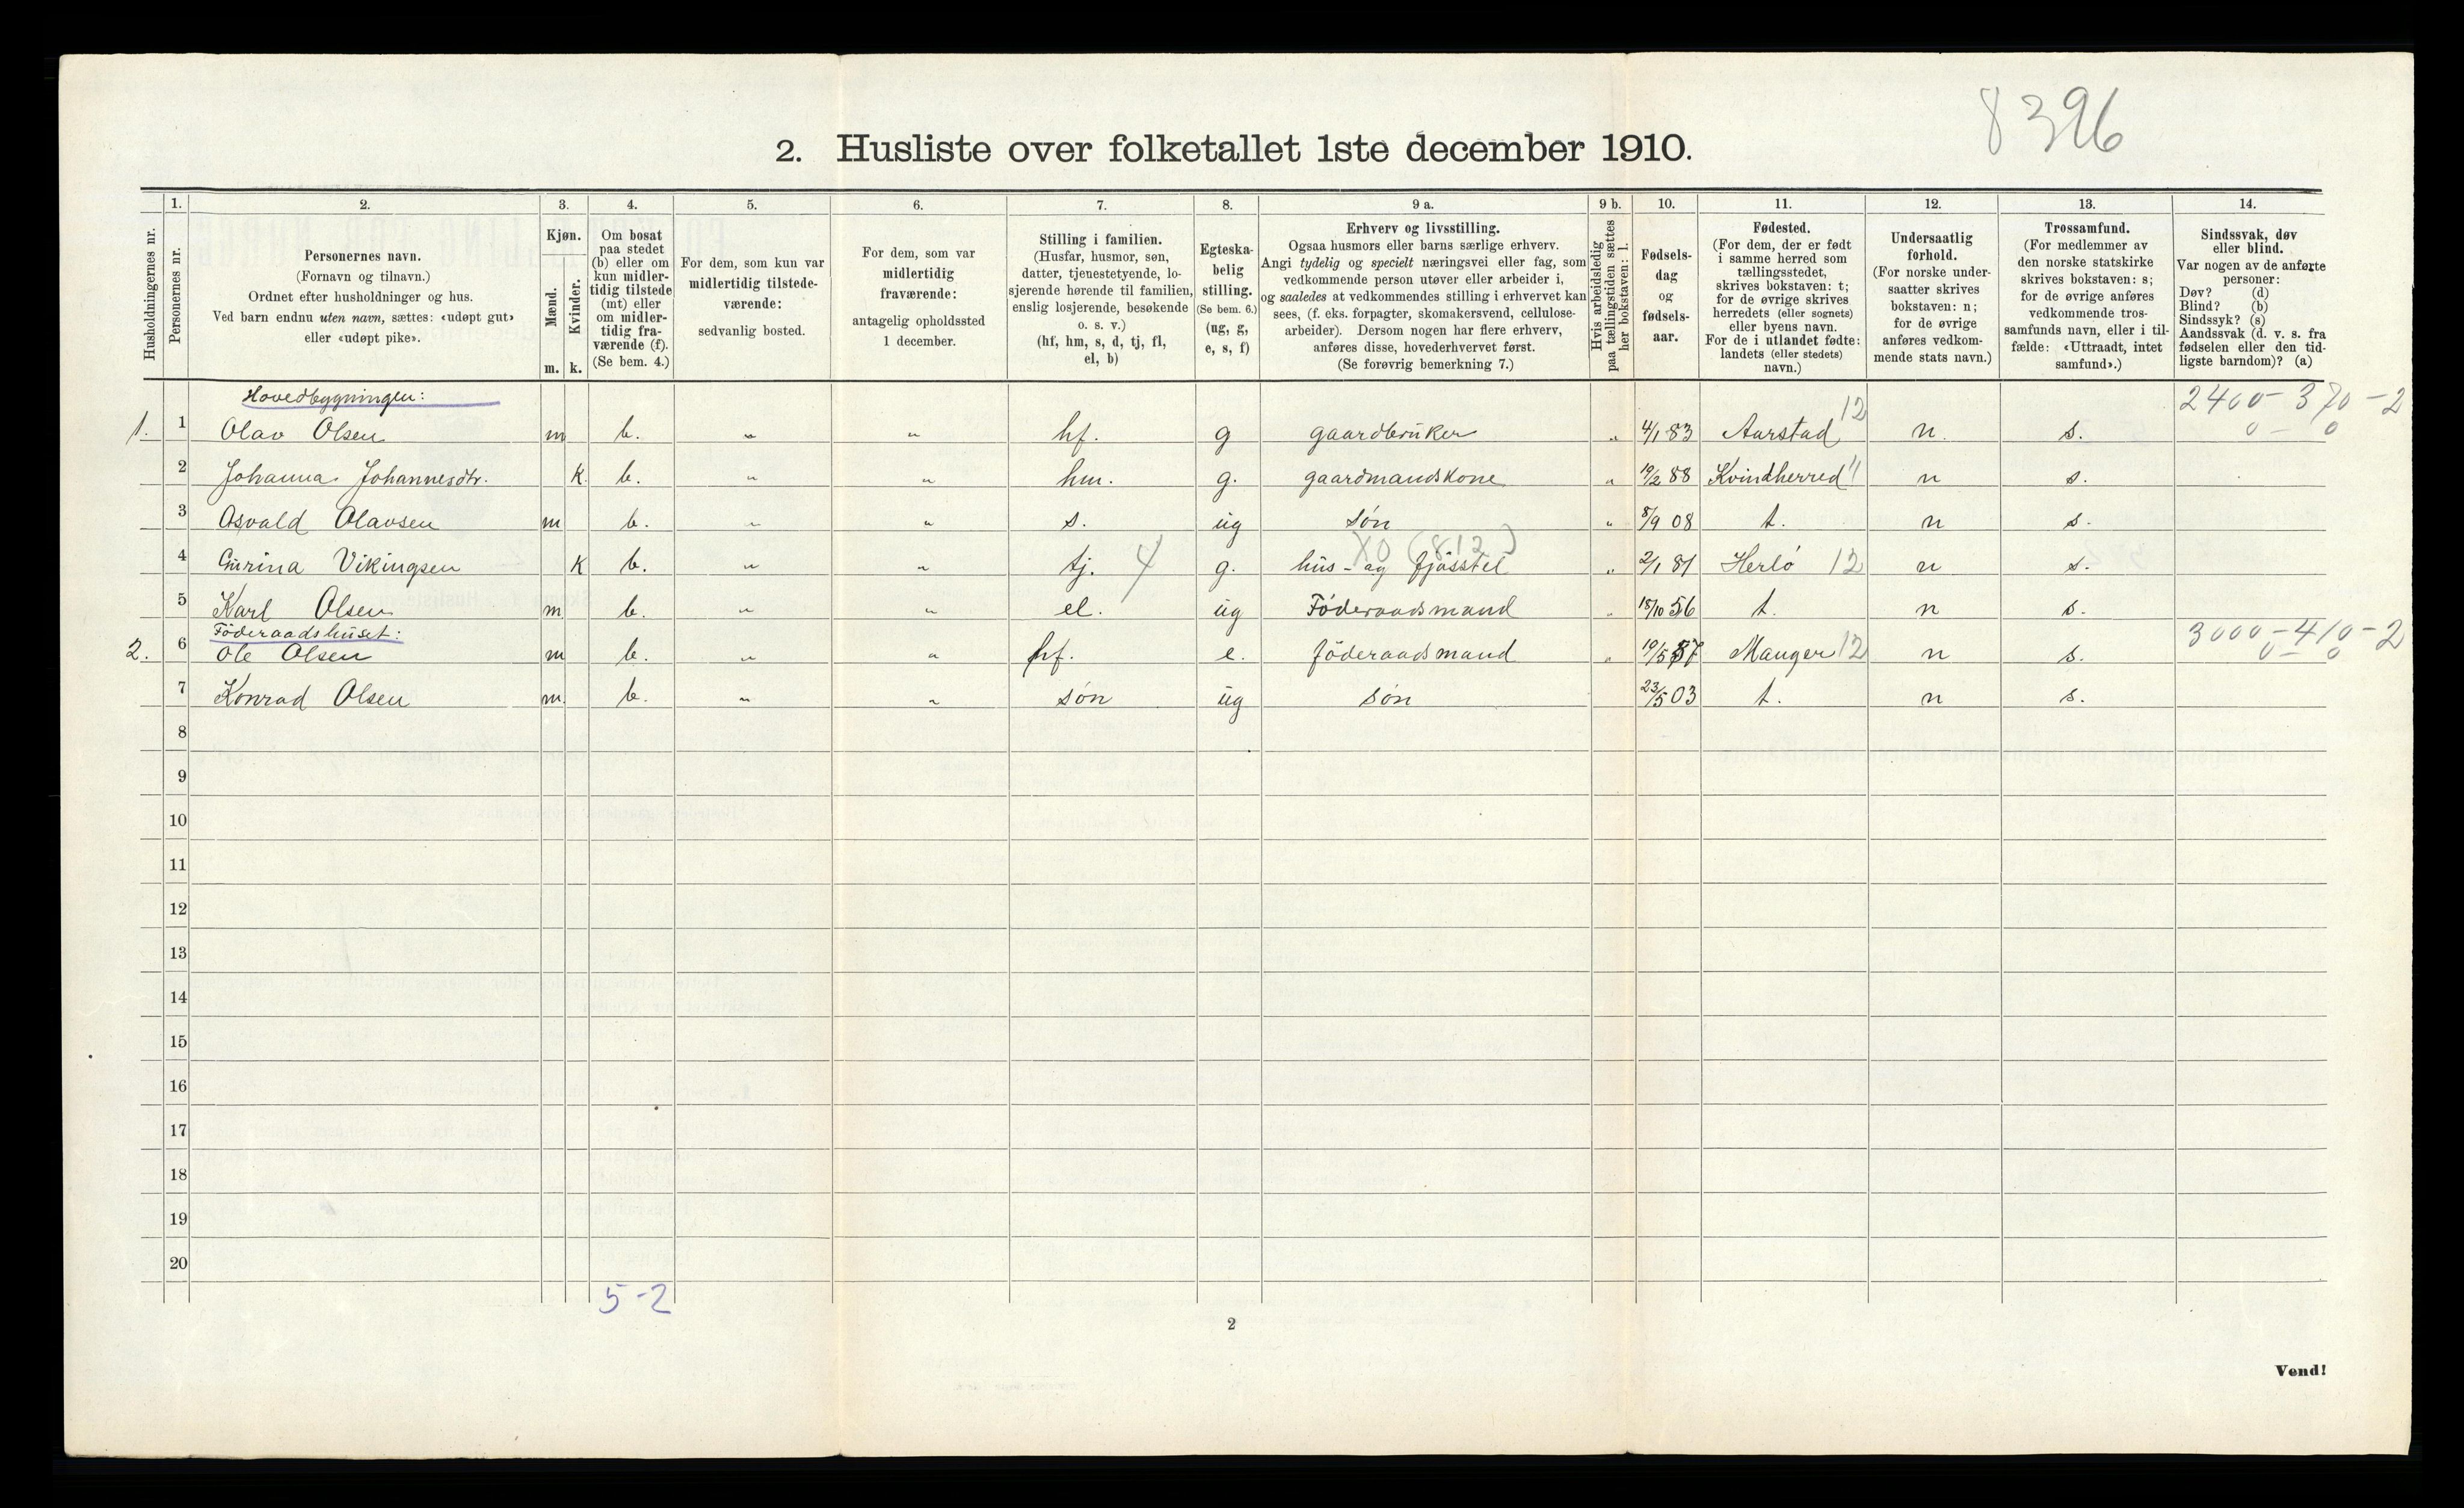 8396
2. Husliste over folketallet 1ste december 1910.
Husholdningernes nr.
1.
Personernes nr.
2.
Personernes navn.
(Fornavn og tilnavn.)
Ordnet efter husholdninger og hus.
Ved barn endnu uten navn, sættes: «udøpt gut»
eller «udøpt pike».
3.
Kjøn.
Mænd.
Kvinder.
m. k.
4.
Om bosat
paa stedet
(b) eller om
kun midler-
tidig tilstede
(mt) eller
om midler-
tidig fra-
værende (f).
(Se bem. 4.)
5.
For dem, som kun var
midlertidig tilstede-
værende:
sedvanlig bosted.
6.
For dem, som var
midlertidig
fraværende:
antagelig opholdssted
1 december.
7.
Stilling i familien.
(Husfar, husmor, søn,
datter, tjenestetyende, lo-
sjerende hørende til familien,
enslig losjerende, besøkende
o. s. v.)
(hf, hm, s, d, tj, fl,
el, b)
8.
Egteska-
belig
stilling.
(Se bem. 6.)
(ug, g,
e, s, f)
9 a.
Erhverv og livsstilling.
Ogsaa husmors eller barns særlige erhverv.
Angi tydelig og specielt næringsvei eller fag, som
vedkommende person utøver eller arbeider i,
og saaledes at vedkommendes stilling i erhvervet kan
sees, (f. eks. forpagter, skomakersvend, cellulose-
arbeider). Dersom nogen har flere erhverv,
anføres disse, hovederhvervet først.
(Se forøvrig bemerkning 7.)
9 b.
Hvis arbeidsledig
paa tællingstiden sættes
her bokstaven: l.
10.
Fødsels-
dag
og
fødsels-
aar.
11.
Fødested.
(For dem, der er født
i samme herred som
tællingsstedet,
skrives bokstaven: t;
for de øvrige skrives
herredets (eller sognets)
eller byens navn.
For de i utlandet fødte:
landets (eller stedets)
navn.)
12.
Undersaatlig
forhold.
(For norske under-
saatter skrives
bokstaven: n;
for de øvrige
anføres vedkom-
mende stats navn.)
13.
Trossamfund.
(For medlemmer av
den norske statskirke
skrives bokstaven: s;
for de øvrige anføres
vedkommende tros-
samfunds navn, eller i til-
fælde: «Uttraadt, intet
samfund».)
14.
Sindssvak, døv
eller blind.
Var nogen av de anførte
personer:
Døv? (d)
Blind? (b)
Sindssyk? (s)
Aandssvak (d. v. s. fra
fødselen eller den tid-
ligste barndom)? (a)
Hovedbygningen:
2400 - 370 - 2
0 - 0
1. 1 Olav Olsen m b. " " hf. g gaardbruker " 4/1 83 Aarstad 12 n. s.
2 Johanna Johannesdtr. k. b. " " hm. g. gaardmandskone " 19/2 88 Kvindherred 11 n s.
3 Osvald Olavsen m b. " " s. ug søn " 8/9 08 t. n s.
X0 (812)
4 Gurina Vikingsen k b. " " tj. 4 g. hus- og fjøsstel " 2/1 81 Herlø 12 n s.
5 Karl Olsen m b. " " el. ug Føderaadsmand " 18/10 56 t. n s.
Føderaadshuset:
3000 - 410 - 2
0 - 0
2. 6 Ole Olsen m b. " " hf. e. føderaadsmand " 19/5 57 Manger 12 n s.
7 Konrad Olsen m. b. " " søn ug søn 23/5 03 t. n s.
8
9
10
11
12
13
14
15
16
17
18
19
20
5-2
2
Vend!